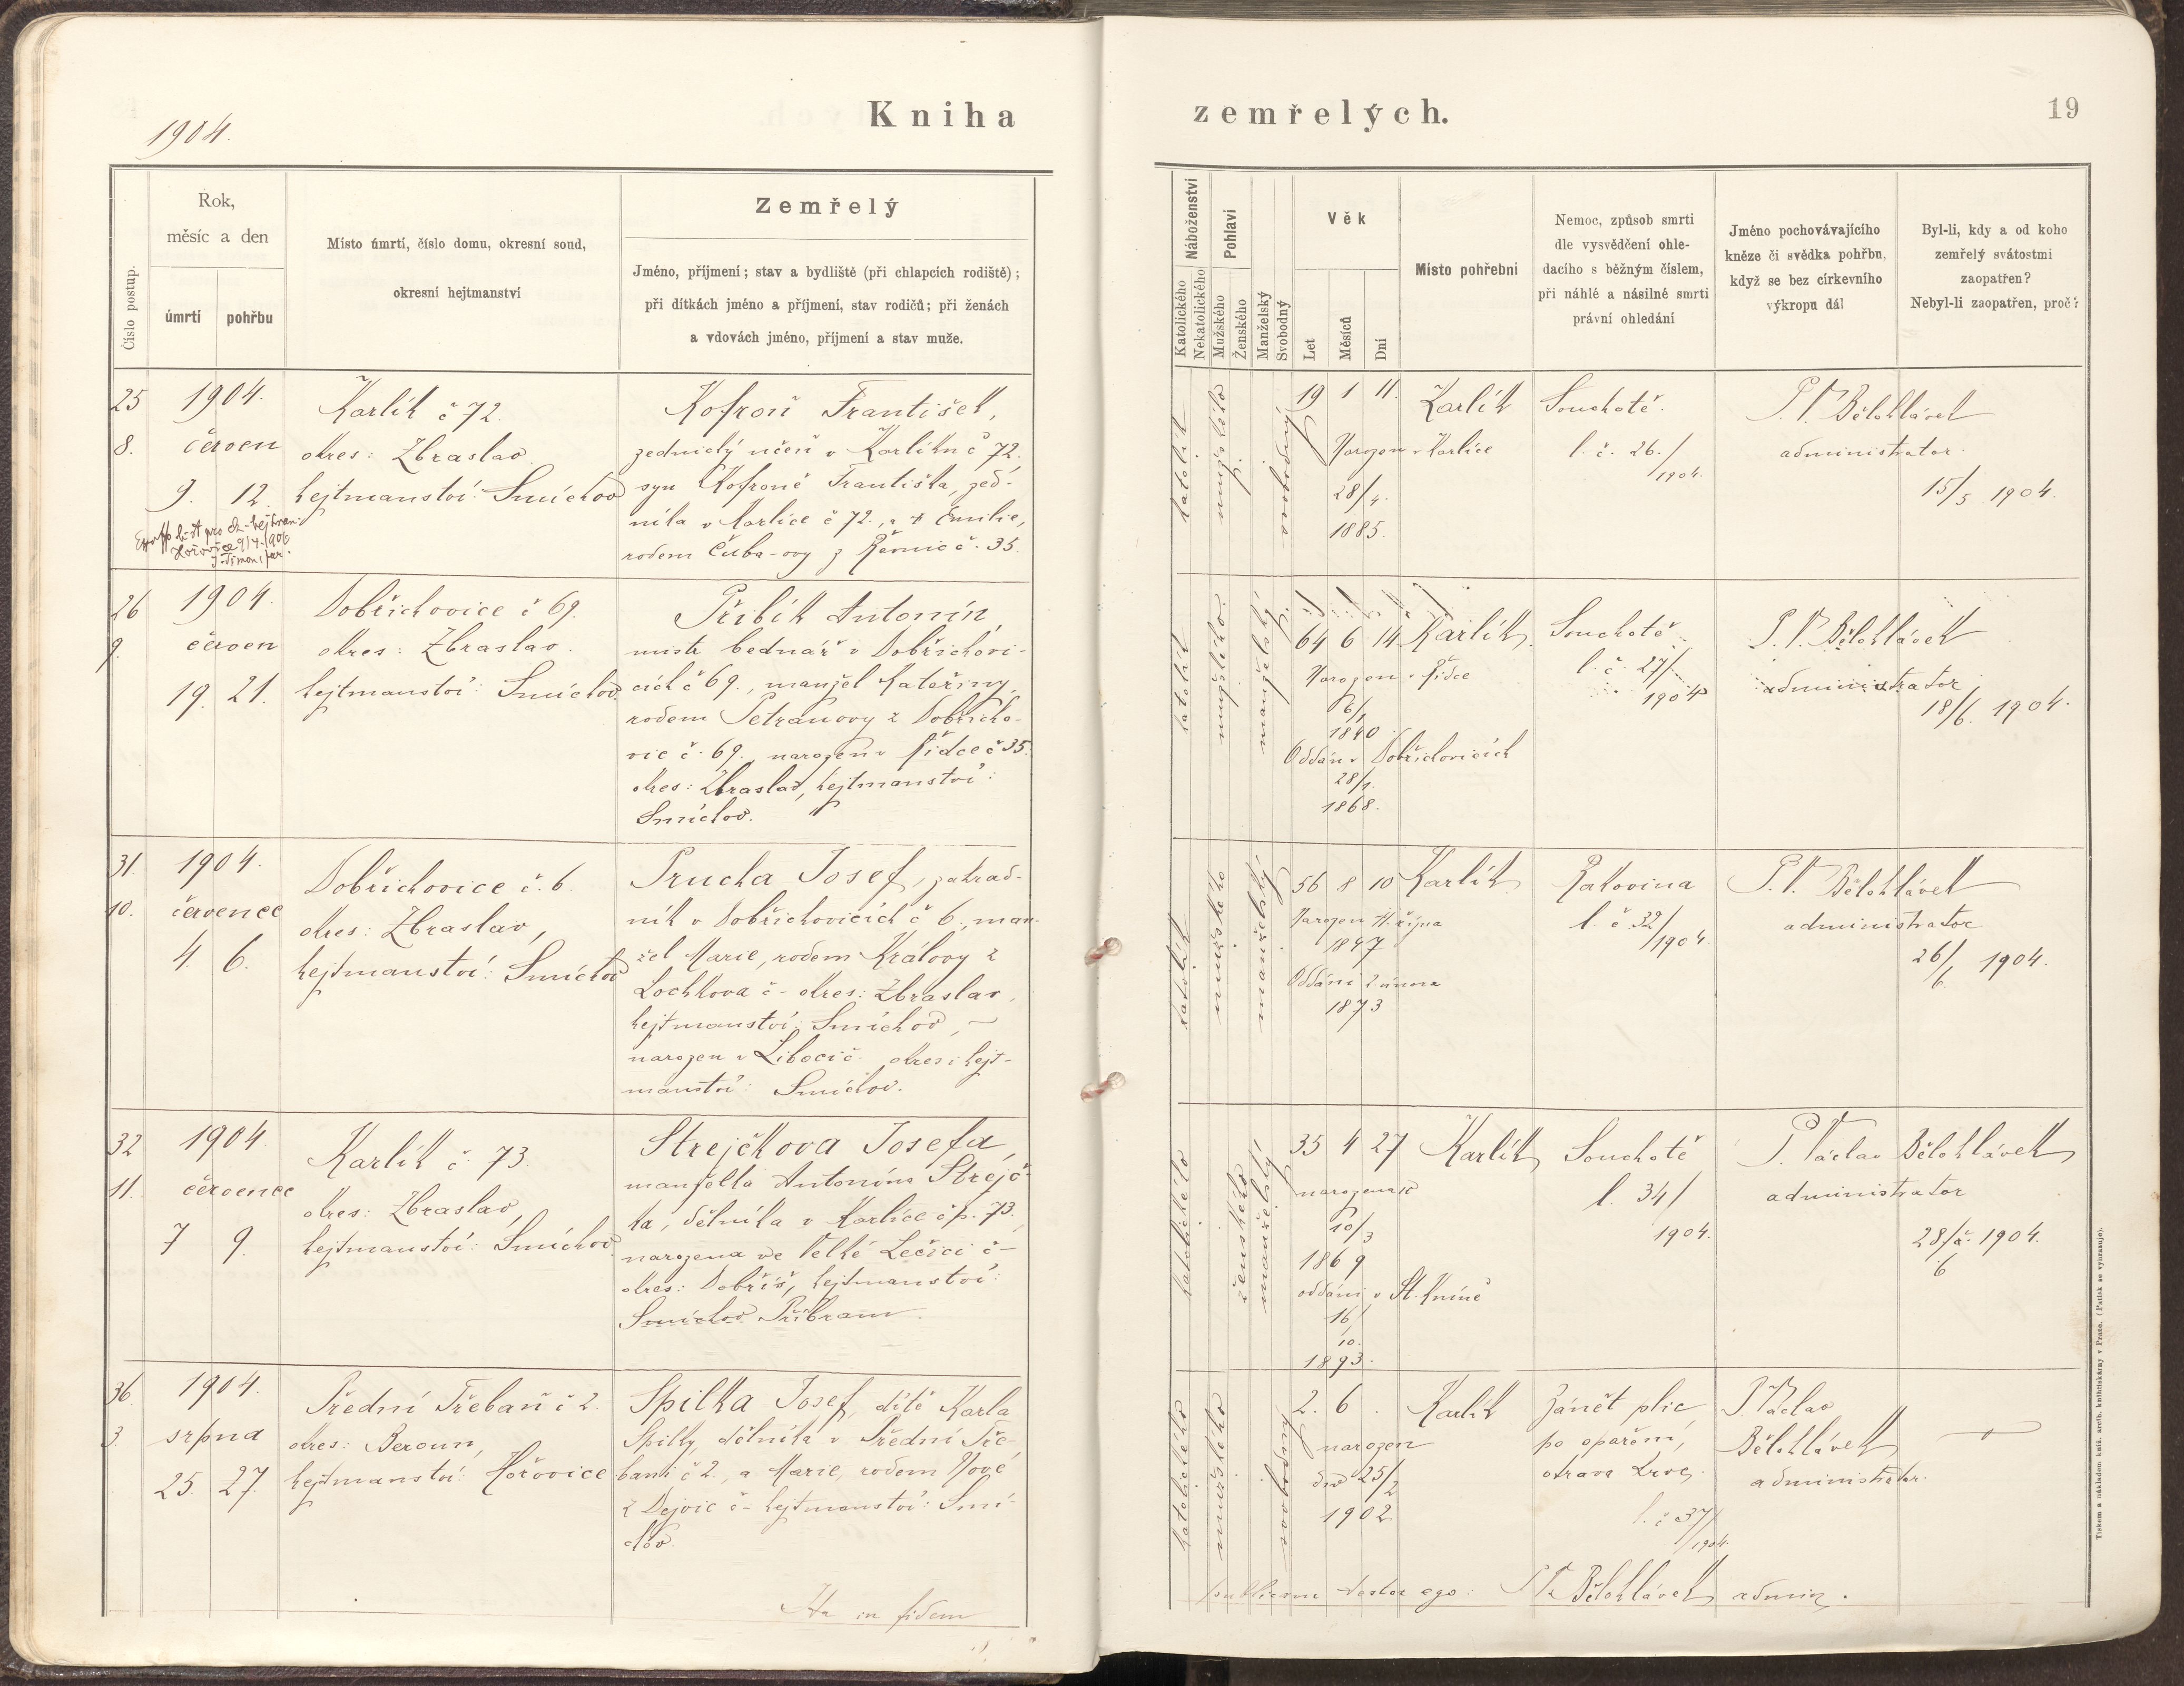 1904.
Kniha
zemřelých.
19
Číslo postup.
Rok,
měsíc a den
úmrtí
pohřbu
Místo úmrtí, číslo domu, okresní soud,
okresní hejtmanství
Zemřelý
Jméno, příjmení; stav a bydliště (při chlapcích rodiště);
při dítkách jméno a příjmení, stav rodičů; při ženách
a vdovách jméno, příjmení a stav muže.
Náboženství
Katolického
Nekatolického
Pohlaví
Mužského
Ženského
Manželský
Svobodný
Věk
Let
Měsíců
Dní
Místo pohřební
Nemoc, způsob smrti
dle vysvědčení ohle-
dacího s běžným číslem,
při náhlé a násilné smrti
právní ohledání
Jméno pochovávajícího
kněze či svědka pohřbu,
když se bez církevního
výkropu dál
Byl-li, kdy a od koho
zemřelý svátostmi
zaopatřen?
Nebyl-li zaopatřen, proč?
25
8.
1904.
červen
9. 12.
Karlík č 72.
okres: Zbraslav.
hejtmanství: Smíchov
Kofroň František,
zednický učeň v Karlíku č 72.
syn Kofroně Františka, zed-
níka v Karlíce č 72., a Emilie,
rodem Čuba-ovy z Řevnic č. 35.
katolík
mužského
svobodný
19 1 11.
Narozen v Karlíce
28/4.
1885.
Karlík
Souchotě.
l. č. 26./
1904.
P. V. Bělohlávek
administrator.
15/5 1904.
26
9.
1904.
červen
19. 21.
Dobřichovice č 69.
okres: Zbraslav.
hejtmanství: Smíchov.
Přibík Antonín,
mistr bednář v Dobřichovi-
cích č 69., manžel Kateřiny,
rodem Petranovy z Dobřicho-
vic č. 69., narozen v Řidce č 35.
okres: Zbraslav, hejtmanství:
Smíchov.
katolík
mužského.
manželský
64 6 14
Narozen v Řidce
6/1
1840
Oddán v Dobřichovicích
28/1.
1868.
Karlík.
Souchotě
l. č. 27/
1904
P. V. Bělohlávek
administrator
18/6. 1904.
31.
10.
1904.
července
4. 6.
Dobřichovice č. 6.
okres: Zbraslav,
hejtmanství: Smíchov
Prucha Josef, zahrad-
ník v Dobřichovicích č 6., man-
žel Marie, rodem Královy z
Lochkova č - okres: Zbraslav,
hejtmanství: Smíchov, -
narozen v Liboci č. okres i hejt-
manství: Smíchov.
katolík
mužského
manželský
56 8 10
Narozen října
1847
Oddáni 2. února
1873
Karlík
Rakovina
l. č 32/
1904.
P. V. Bělohlávek
administrator
26/6. 1904.
32
11.
1904.
července
7 9.
Karlík č. 73.
okres: Zbraslav,
hejtmanství: Smíchov.
Strejčkova Josefa,
manželka Antonína Strejč-
ka, dělníka v Karlíce čp. 73.,
narozena ve Velké Lečici č -
okres: Dobříš, hejtmanství:
Smíchov Příbram.
katolického
ženského
manželský
35 4 27
narozena
10/3
1869
oddáni v St. Kníně
16/
10.
1893.
Karlík
Souchotě
l. 34/
1904.
P. Václav Bělohlávek
administrator
28/6 1904.
36.
3.
1904.
srpna
25. 27.
Přední Třebaň č 2.
okres: Beroun,
hejtmanství: Hořovice
Spilka Josef, dítě Karla
Spilky, dělníka v Přední Tře-
bani č 2., a Marie, rodem Nové
z Dejvic č - hejtmanství: Smí-
chov.
katolického
mužského
svobodný
2. 6.
narozen
dne 25/2
1902
Karlík
Zánět plic
po opaření,
otrava krve.
l. č 37/
1904.
P. Václav
Bělohlávek
administrátor.
Ita in fidem
publicam testor ego: P. V. Bělohlávek admin.
Tiskem a nákladem kníž. arcib. knihtiskárny v Praze. (Patisk se vyhrazuje).